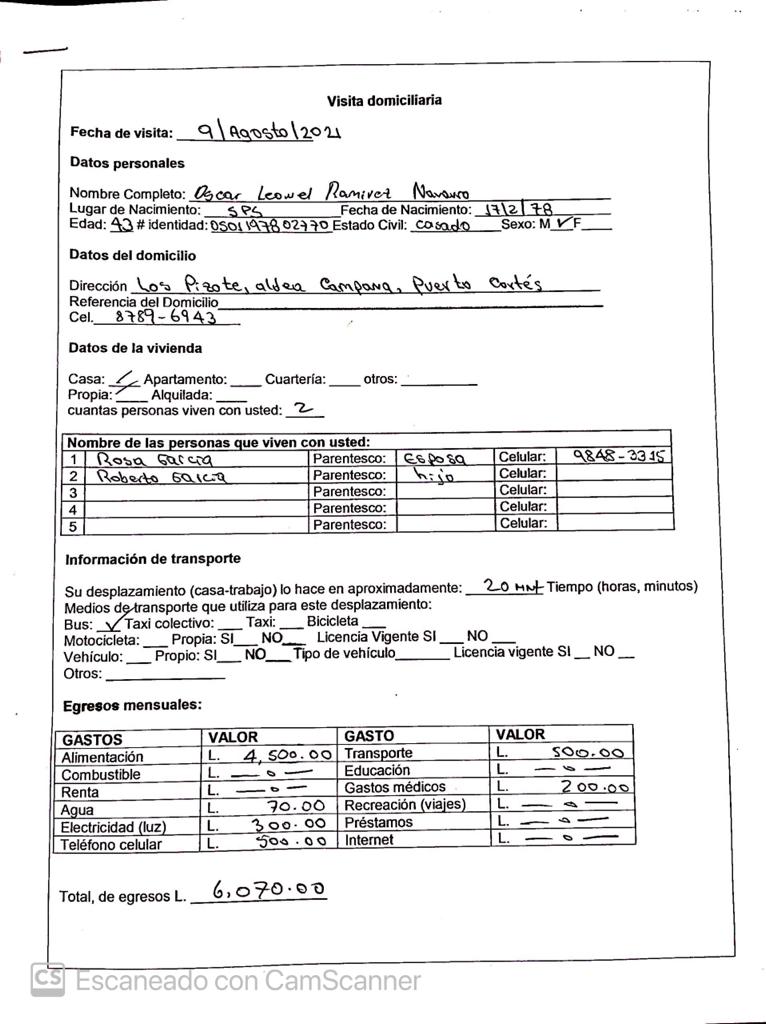 Visita domiciliaria
Fecha de visita: 9/Agosto/2021
Datos personales
Nombre Completo: Oscar Leonel Ramirez Navarro
Lugar de Nacimiento: SPS Fecha de Nacimiento: 17/2/78
Edad: 43 # identidad: 0501197802770 Estado Civil: casado Sexo: M ✓ F
Datos del domicilio
Dirección Los Pizote, aldea Campana, Puerto Cortés
Referencia del Domicilio
Cel. 8789-6943
Datos de la vivienda
Casa: ✓ Apartamento: ____ Cuartería: ____ otros: ____
Propia: ✓ Alquilada: ____
cuantas personas viven con usted: 2
Nombre de las personas que viven con usted:
1 Rosa Garcia Parentesco: Esposa Celular: 9848-3315
2 Roberto Garcia Parentesco: hijo Celular:
3 Parentesco: Celular:
4 Parentesco: Celular:
5 Parentesco: Celular:
Información de transporte
Su desplazamiento (casa-trabajo) lo hace en aproximadamente: 20 mnt Tiempo (horas, minutos)
Medios de transporte que utiliza para este desplazamiento:
Bus: ✓ Taxi colectivo: ____ Taxi: ____ Bicicleta ____
Motocicleta: ____ Propia: SI____ NO____ Licencia Vigente SI ____ NO ____
Vehículo: ____ Propio: SI____ NO____ Tipo de vehículo____ Licencia vigente SI __ NO __
Otros: ____
Egresos mensuales:
GASTOS VALOR GASTO VALOR
Alimentación L. 4,500.00 Transporte L. 500.00
Combustible L. — 0 — Educación L. — 0 —
Renta L. — 0 — Gastos médicos L. 200.00
Agua L. 70.00 Recreación (viajes) L. — 0 —
Electricidad (luz) L. 300.00 Préstamos L. — 0 —
Teléfono celular L. 500.00 Internet L. — 0 —
Total, de egresos L. 6,070.00
CS Escaneado con CamScanner